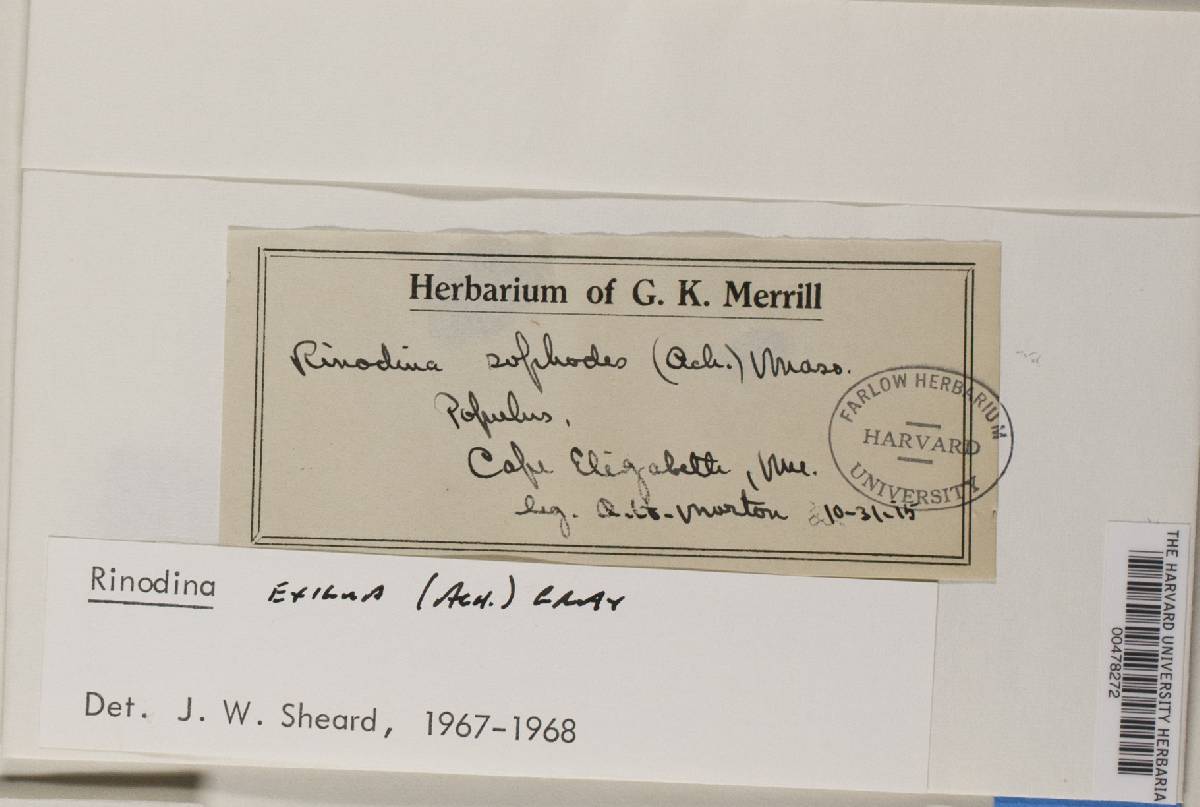 Herbarium of G. K. Merrill
Rinodina sophodes (Ach.) Mass.
Populus,
Cape Elizabeth, Me.
leg. Morton 10-31-15
FARLOW HERBARIUM
HARVARD
UNIVERSITY
Rinodina EXIGUA (ACH.) GRAY
Det. J. W. Sheard, 1967-1968
THE HARVARD UNIVERSITY HERBARIA
00478272